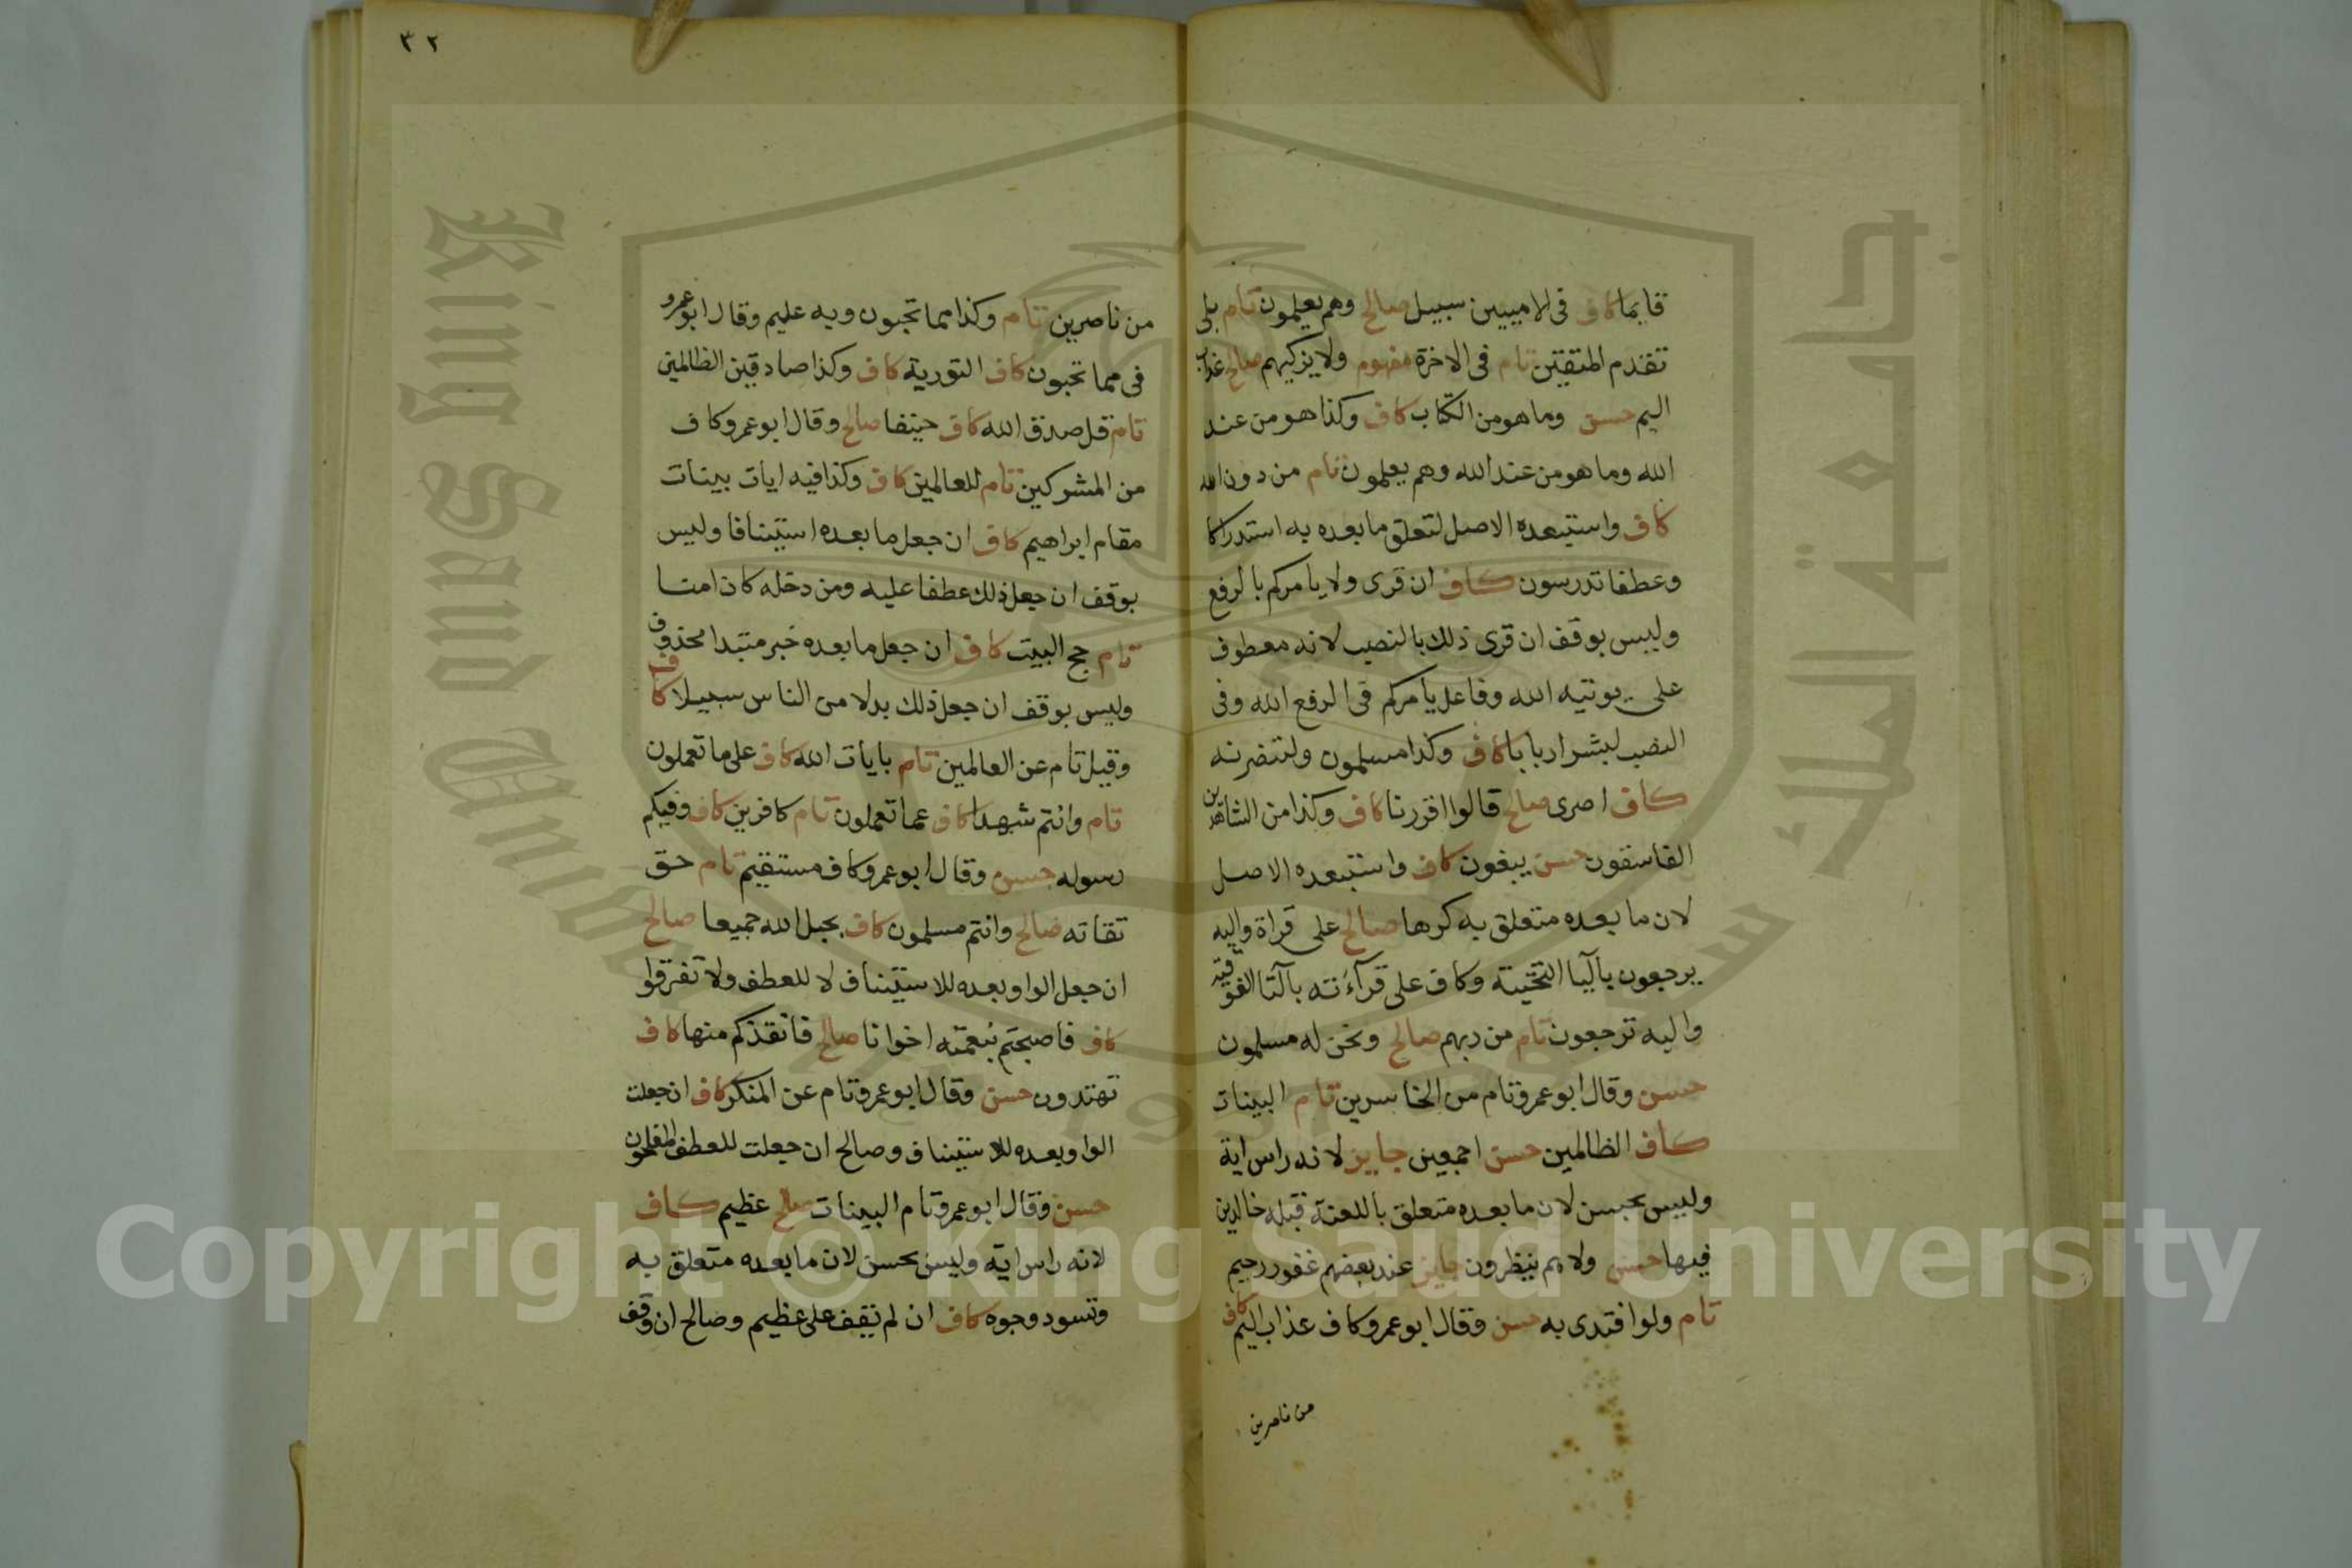 قايما كاف فى الاميين سبيل صالح وهم يعلمون تام بلى
تقدم المتقين تام فى الاخرة مفهوم ولا يزكيهم صالح عذاب
اليم حسن وما هو من الكتاب كاف وكذا هو من عند
الله وما هو من عند الله وهم يعلمون تام من دون الله
كاف واستبعده الاصل لتعلق ما بعده به استدراكا
وعطفا تدرسون كاف ان قرى ولا يامركم بالرفع
وليس بوقف ان قرى ذلك بالنصب لانه معطوف
على يوتيه الله وفاعل يامركم فى الرفع الله وفى
النصب لبشر اربابا كاف وكذا مسلمون ولتنصرنه
كاف اصرى صالح قالوا اقررنا كاف وكذا من الشاهدين
الفاسقون حسن يبغون كاف واستبعده الاصل
لان ما بعده متعلق به كرها صالح على قراة واليه
يرجعون باليا التحتية وكاف على قرآءته بالتا الفوقية
واليه ترجعون تام من ربهم صالح ونحن له مسلمون
حسن وقال ابو عمرو تام من الخاسرين تام البينات
كاف الظالمين حسن اجمعين جايز لانه راس اية
وليس بحسن لان ما بعده متعلق باللعنة قبله خالدين
فيها حسن ولا هم ينظرون جايز عند بعضهم غفور رحيم
تام ولو افتدى به حسن وقال ابو عمرو كاف عذاب اليم كاف
من ناصرين
٣٢
من ناصرين تام وكذا مما تحبون وبه عليم وقال ابو عمرو
فى مما تحبون كاف التورية كاف وكذا صادقين الظالمين
تام قل صدق الله كاف حنيفا صالح وقال ابو عمرو كاف
من المشركين تام للعالمين كاف وكذا فيه ايات بينات
مقام ابراهيم كاف ان جعل ما بعده استينافا وليس
بوقف ان جعل ذلك عطفا عليه ومن دخله كان امنا
تام حج البيت كاف ان جعل ما بعده خبر مبتدا محذوف
وليس بوقف ان جعل ذلك بدلا من الناس سبيلا كاف
وقيل تام عن العالمين تام بايات الله كاف على ما تعملون
تام وانتم شهدا كاف عما تعملون تام كافرين كاف وفيكم
رسوله حسن وقال ابو عمرو كاف مستقيم تام حق
تقاته صالح وانتم مسلمون كاف بحبل الله جميعا صالح
ان جعل الواو بعده للاستيناف لا للعطف ولا تفرقوا
كاف فاصبحتم بنعمته اخوانا صالح فانقذكم منها كاف
تهتدون حسن وقال ابو عمرو تام عن المنكر كاف ان جعلت
الواو بعده للاستيناف وصالح ان جعلت للعطف المفلحون
حسن وقال ابو عمرو تام البينات صالح عظيم كاف
لانه راس اية وليس بحسن لان ما بعده متعلق به
وتسود وجوه كاف ان لم تقف على عظيم وصالح ان وقف
King Saud University
جامعة الملك سعود
1957
Copyright © King Saud University